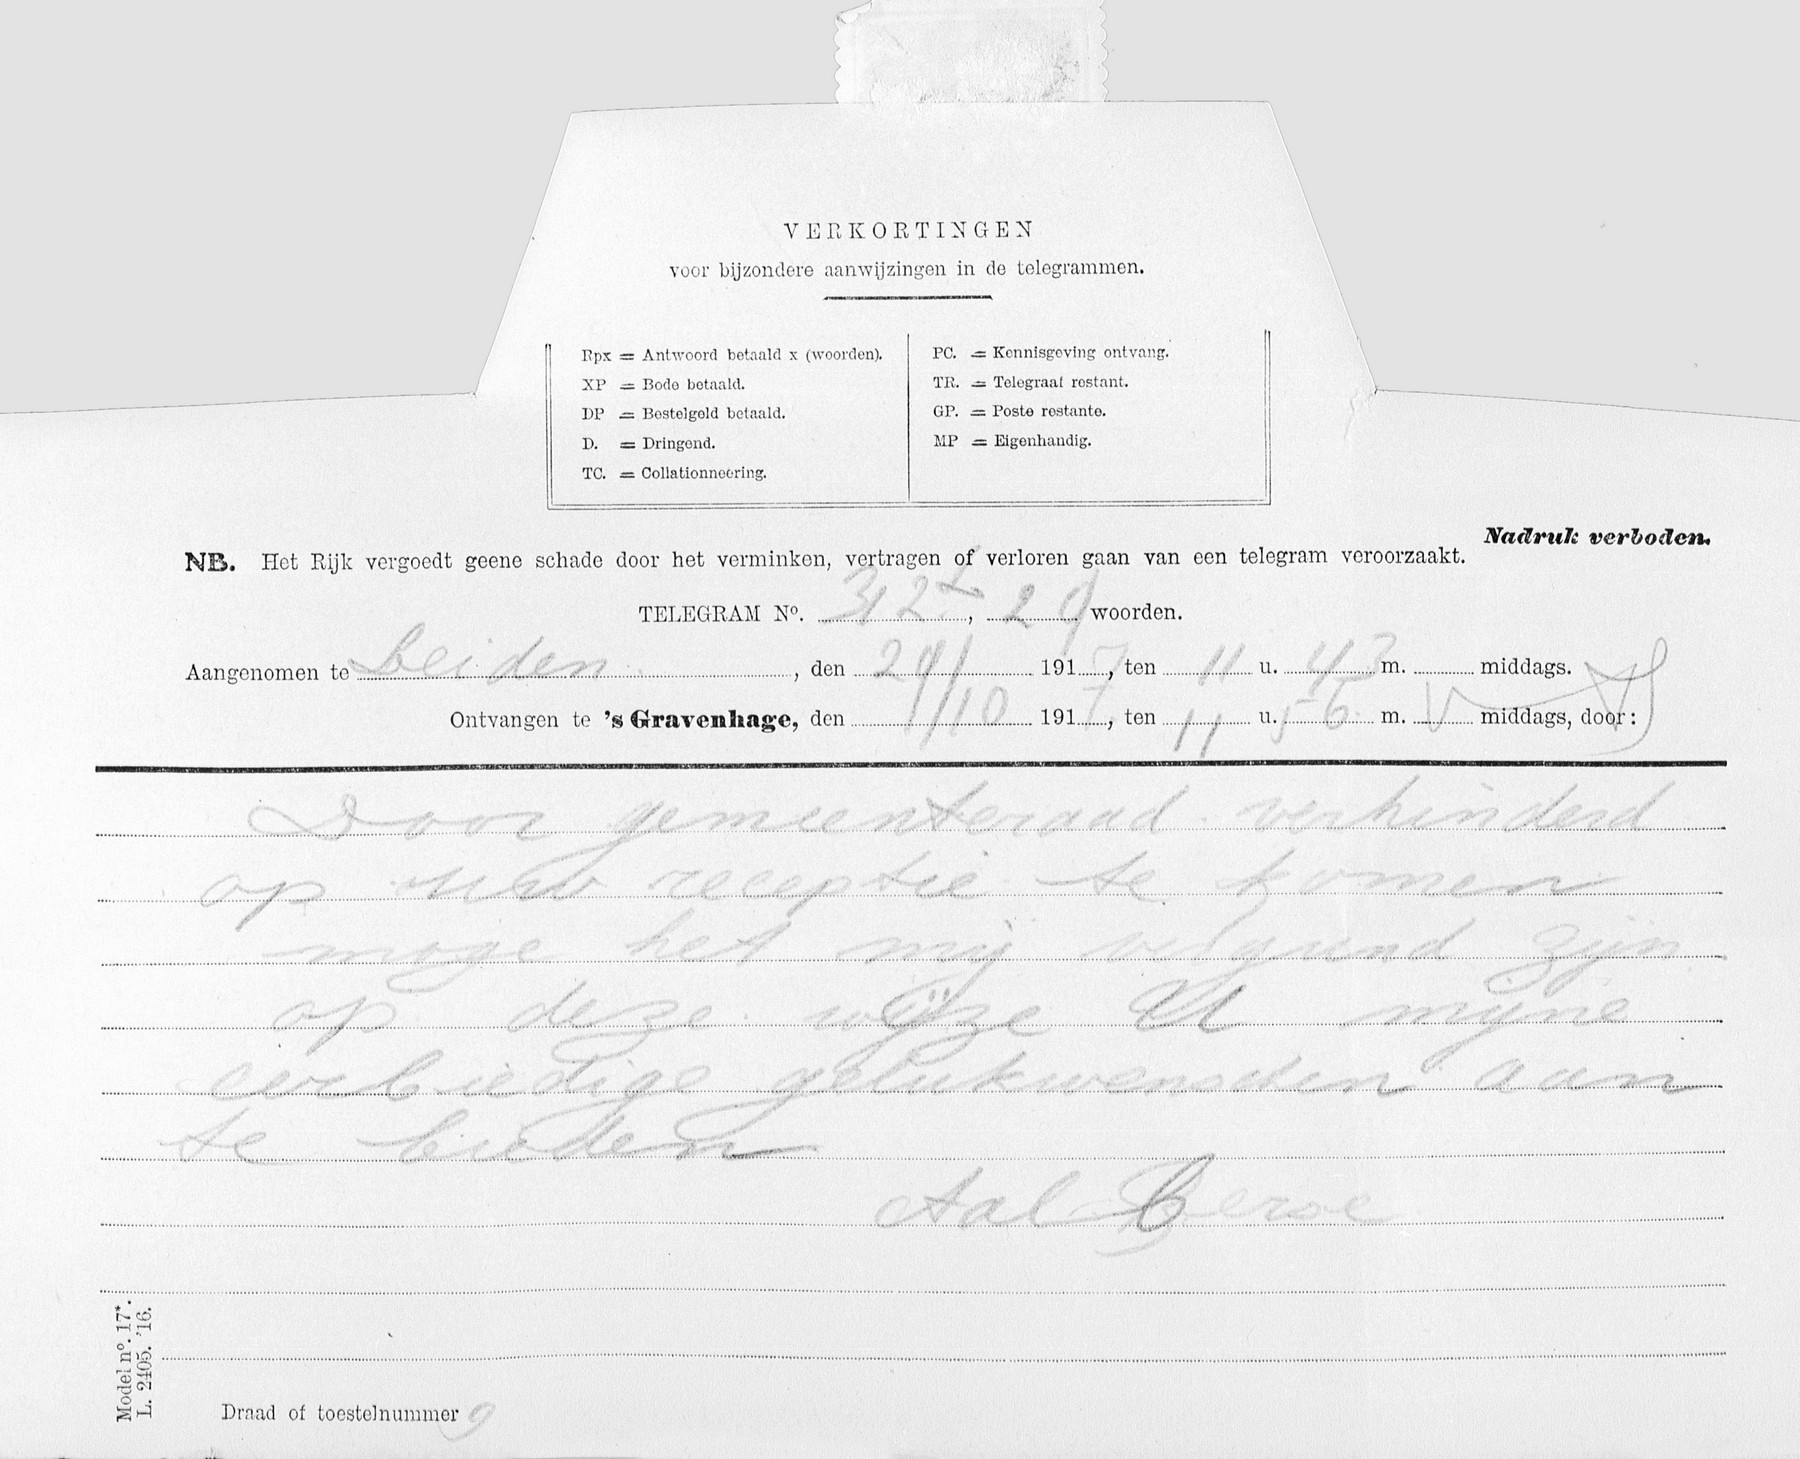 VERKORTINGEN
voor bijzondere aanwijzingen in de telegrammen.
Rpx = Antwoord betaald x (woorden).
XP = Bode betaald.
DP = Bestelgeld betaald.
D. = Dringend.
TC. = Collationneering.
PC. = Kennisgeving ontvang.
TR. = Telegraaf restant.
GP. = Poste restante.
MP = Eigenhandig.
Nadruk verboden.
NB. Het Rijk vergoedt geene schade door het verminken, vertragen of verloren gaan van een telegram veroorzaakt.
TELEGRAM No. 312, 29 woorden.
Aangenomen te Leiden, den 29/ 1917, ten 11 u. 43 m. middags.
Ontvangen te 's Gravenhage, den /10 1917, ten 11 u. 56 m. v middags, door:
Door gemeenteraad verhinderd
op uw receptie te komen
moge het mij vergund zijn
op deze wijze U mijne
eerbiedige gelukwenschen aan
te bieden
Aalberse
Model no. 17*.
L. 2405. '16.
Draad of toestelnummer 9